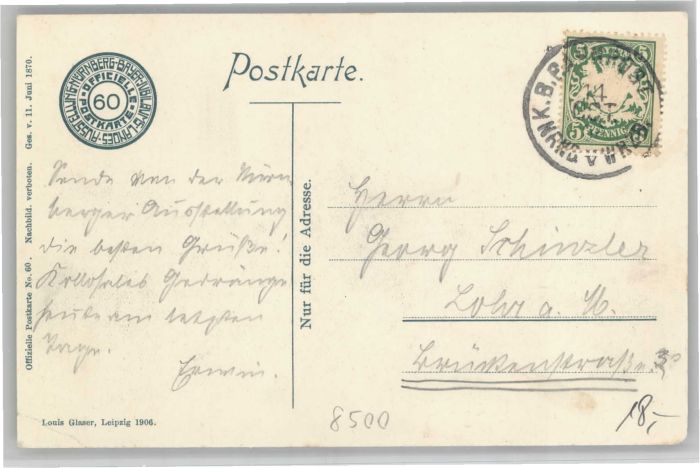 Postkarte.
NÜRNBERG-BAYR-JUBILÄUMS-LANDES-AUSSTELLUNG
OFFICIELLE POSTKARTE
60
Offizielle Postkarte No. 60. Nachbild. verboten. Ges. v. 11. Juni 1870.
Sende von der Nürn
berger Ausstellung
die besten Grüße!
Kollosales Gedränge
heute am letzten
Tage.
Erwin.
Louis Glaser, Leipzig 1906.
Nur für die Adresse.
K.B.
14
5 5
5 PFENNIG
Herrn
Georg Schinzler
Lohr a. M.
Brückenstraße
8500
18,-